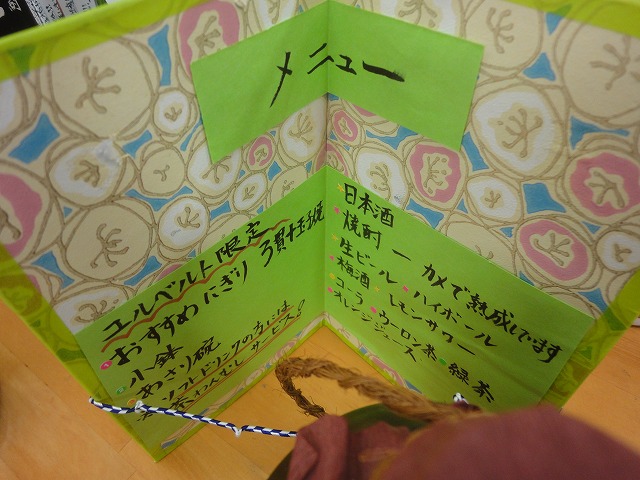 メニュー
エルベルト限定
おすすめにぎり 3貫+玉焼
小鉢
あさり碗
※ソフトドリンクの方には
茶わんむしサービス!
日本酒
焼酎 ー カメで熟成しています
生ビール・ハイボール
梅酒・レモンサワー
コーラ・ウーロン茶・緑茶
オレンジジュース